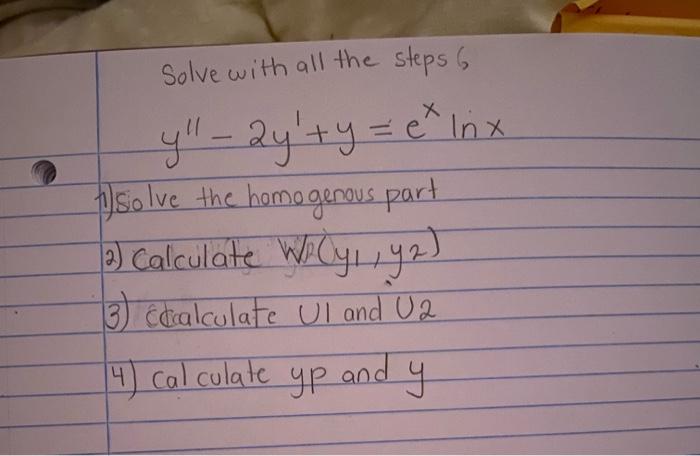 Solve with all the steps
y'' - 2y' + y = e^x ln x
1) Solve the homogenous part
2) Calculate W(y1, y2)
3) calculate U1 and U2
4) calculate yp and y